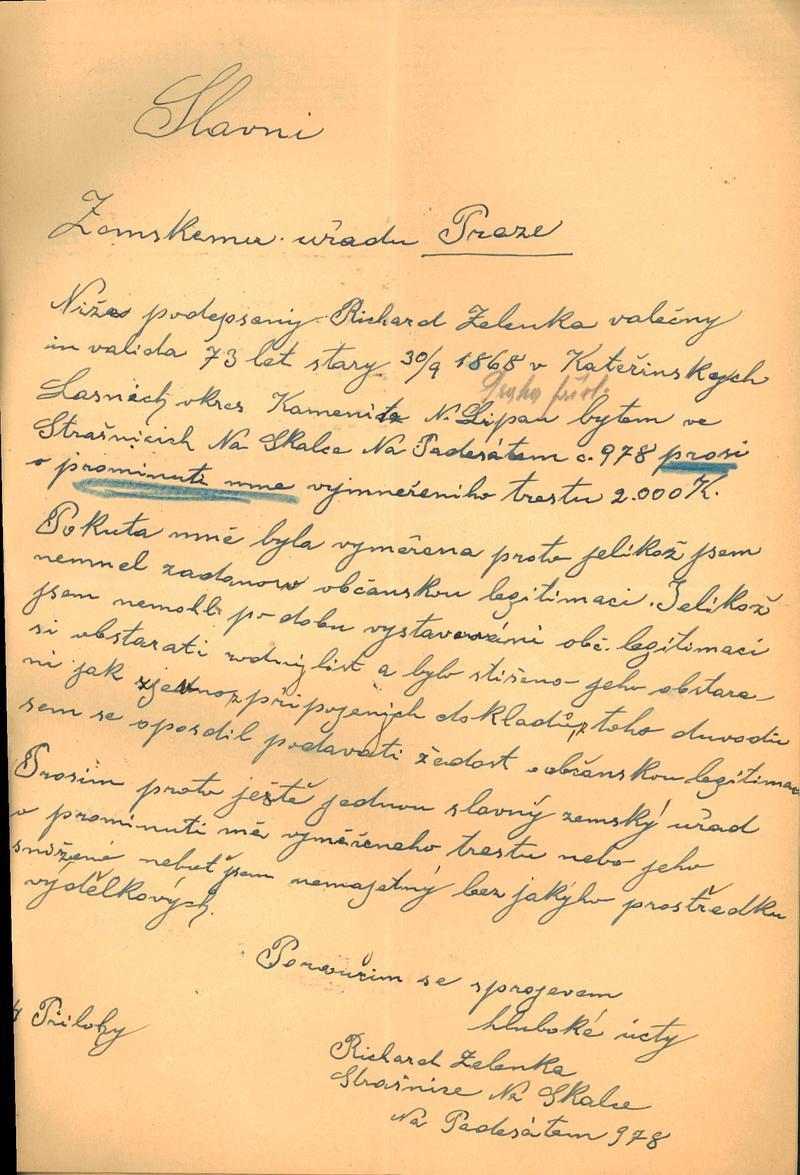 Slavni
Zemskemu uřadu Praze
Niže podepsaný Richard Zelenka valečny
in valida 73 let stary 30/9 1868 v Kateřinskych
Lasnách okres Kamenitz N. Lipau bytem ve
Strašnicich Na Skalce Na Padesátem c. 978 prosi
o prominuti mne vyjmneřeniho trestu 2.000 K.
Pokuta mně byla vyměrena proto jelikož jsem
nemnel zadanow občanskou legitimaci. Jelikož
jsem nemohl po dobu vystavováni obč. legitimaci
si obstarati rodnij list a bylo stiženo jeho obstara-
ni jak zjevno z připojenich dokladů, z toho duvodu
sem se oposdil podavati žádost o občanskou legitimac
Prosim proto ještě jednou slavný zemský uřad
o prominuti mě vyměřeneho trestu nebo jeho
snižené nebuť jsem nemajetný bez jakýho prostředku
výdělkových.
Poroučim se sprojevem
hluboké ucty
4 Přilohy
Richard Zelenka
Strašnice Na Skalce
Na Padesátem 978